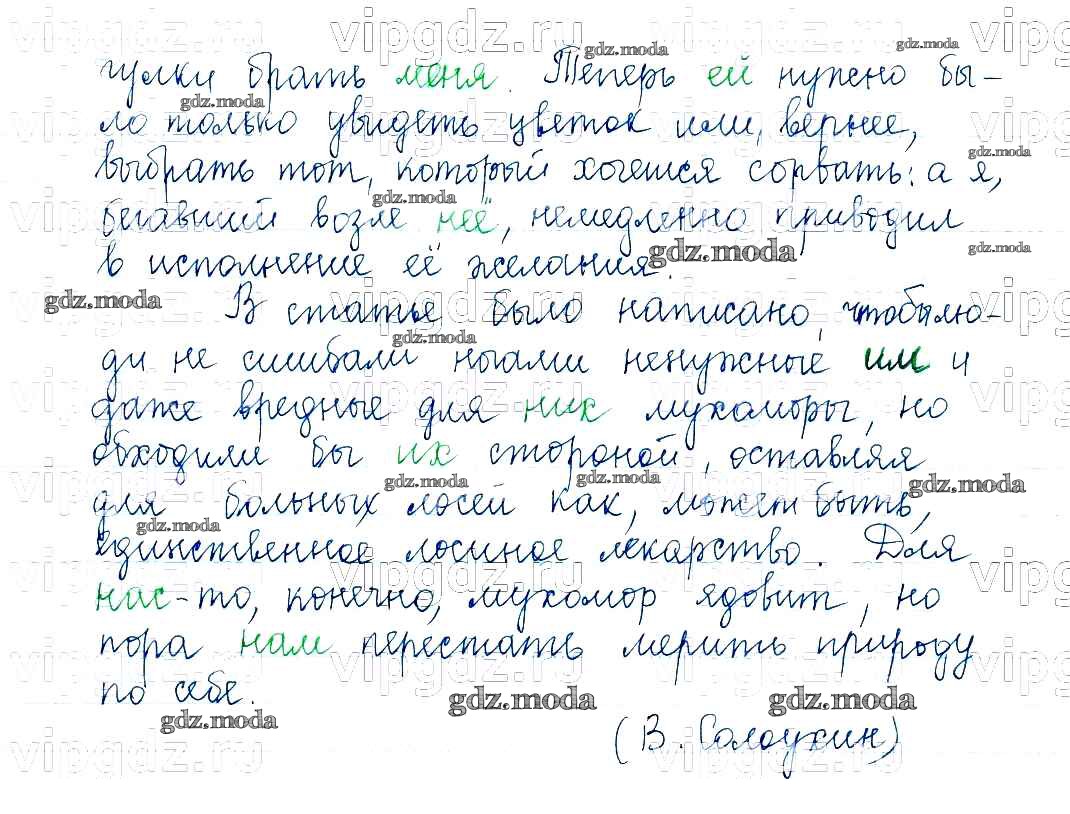 гулки брать меня. Теперь ей нужно бы-
ло только увидеть цветок или, вернее,
выбрать тот, который хочешся сорвать: а я,
бегавший возле неё, немедленно приводил
в исполнение её желания.
В статье было написано, чтобы лю-
ди не сшибали ногами ненужные им и
даже вредные для них мухоморы, но
обходили бы их стороной, оставляя
для больных лосей как, может быть,
единственное лосиное лекарство. Для
нас-то, конечно, мухомор ядовит, но
пора нам перестать мерить природу
по себе.
(В. Солоухин)